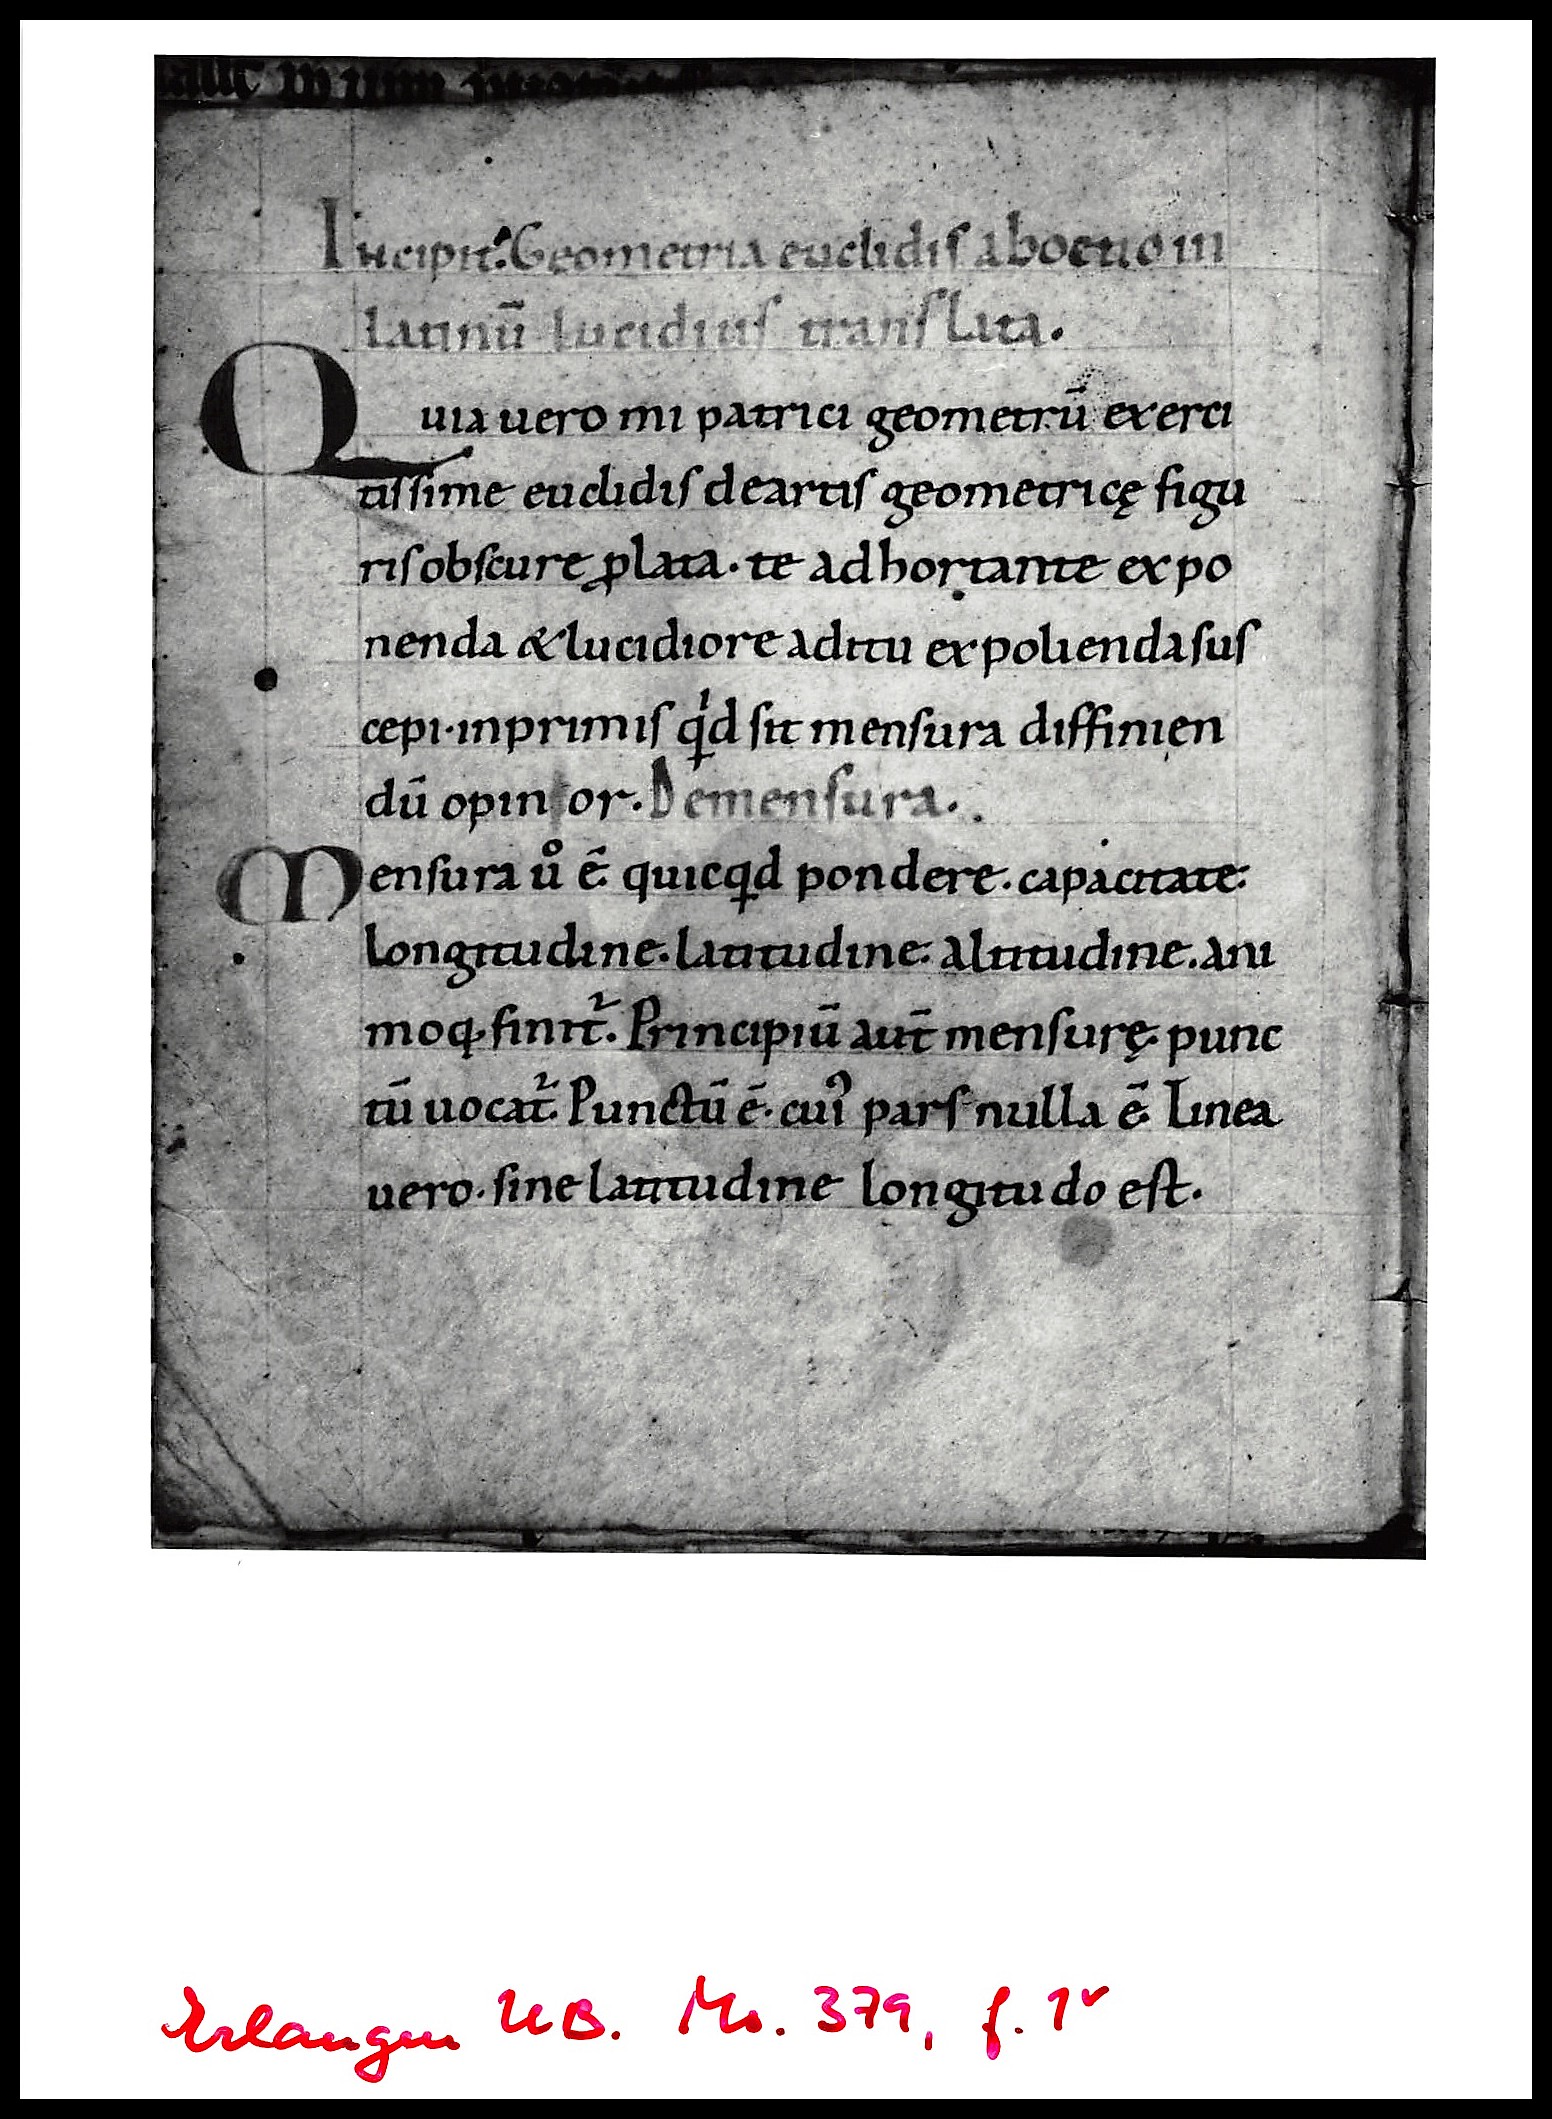 Incipit. Geometria euclidis a boetio in
latinū lucidius translata.
Quia uero mi patrici geometrū exerci
tissime euclidis de artis geometricę figu
ris obscure ꝓlata · te adhortante expo
nenda & lucidiore aditu expolienda sus
cepi · inprimis qͥd sit mensura diffinien
dū opin or. De mensura.
Mensura uͦ ē quicqd pondere. capacitate.
longitudine. latitudine. altitudine. ani
moq; finit᷑. Principiū aut̄ mensurę punc
tū uocat᷑. Punctū ē. cuiꝰ pars nulla ē. Linea
uero. sine latitudine longitudo est.
Erlangen UB. Ms. 379, f. 1v